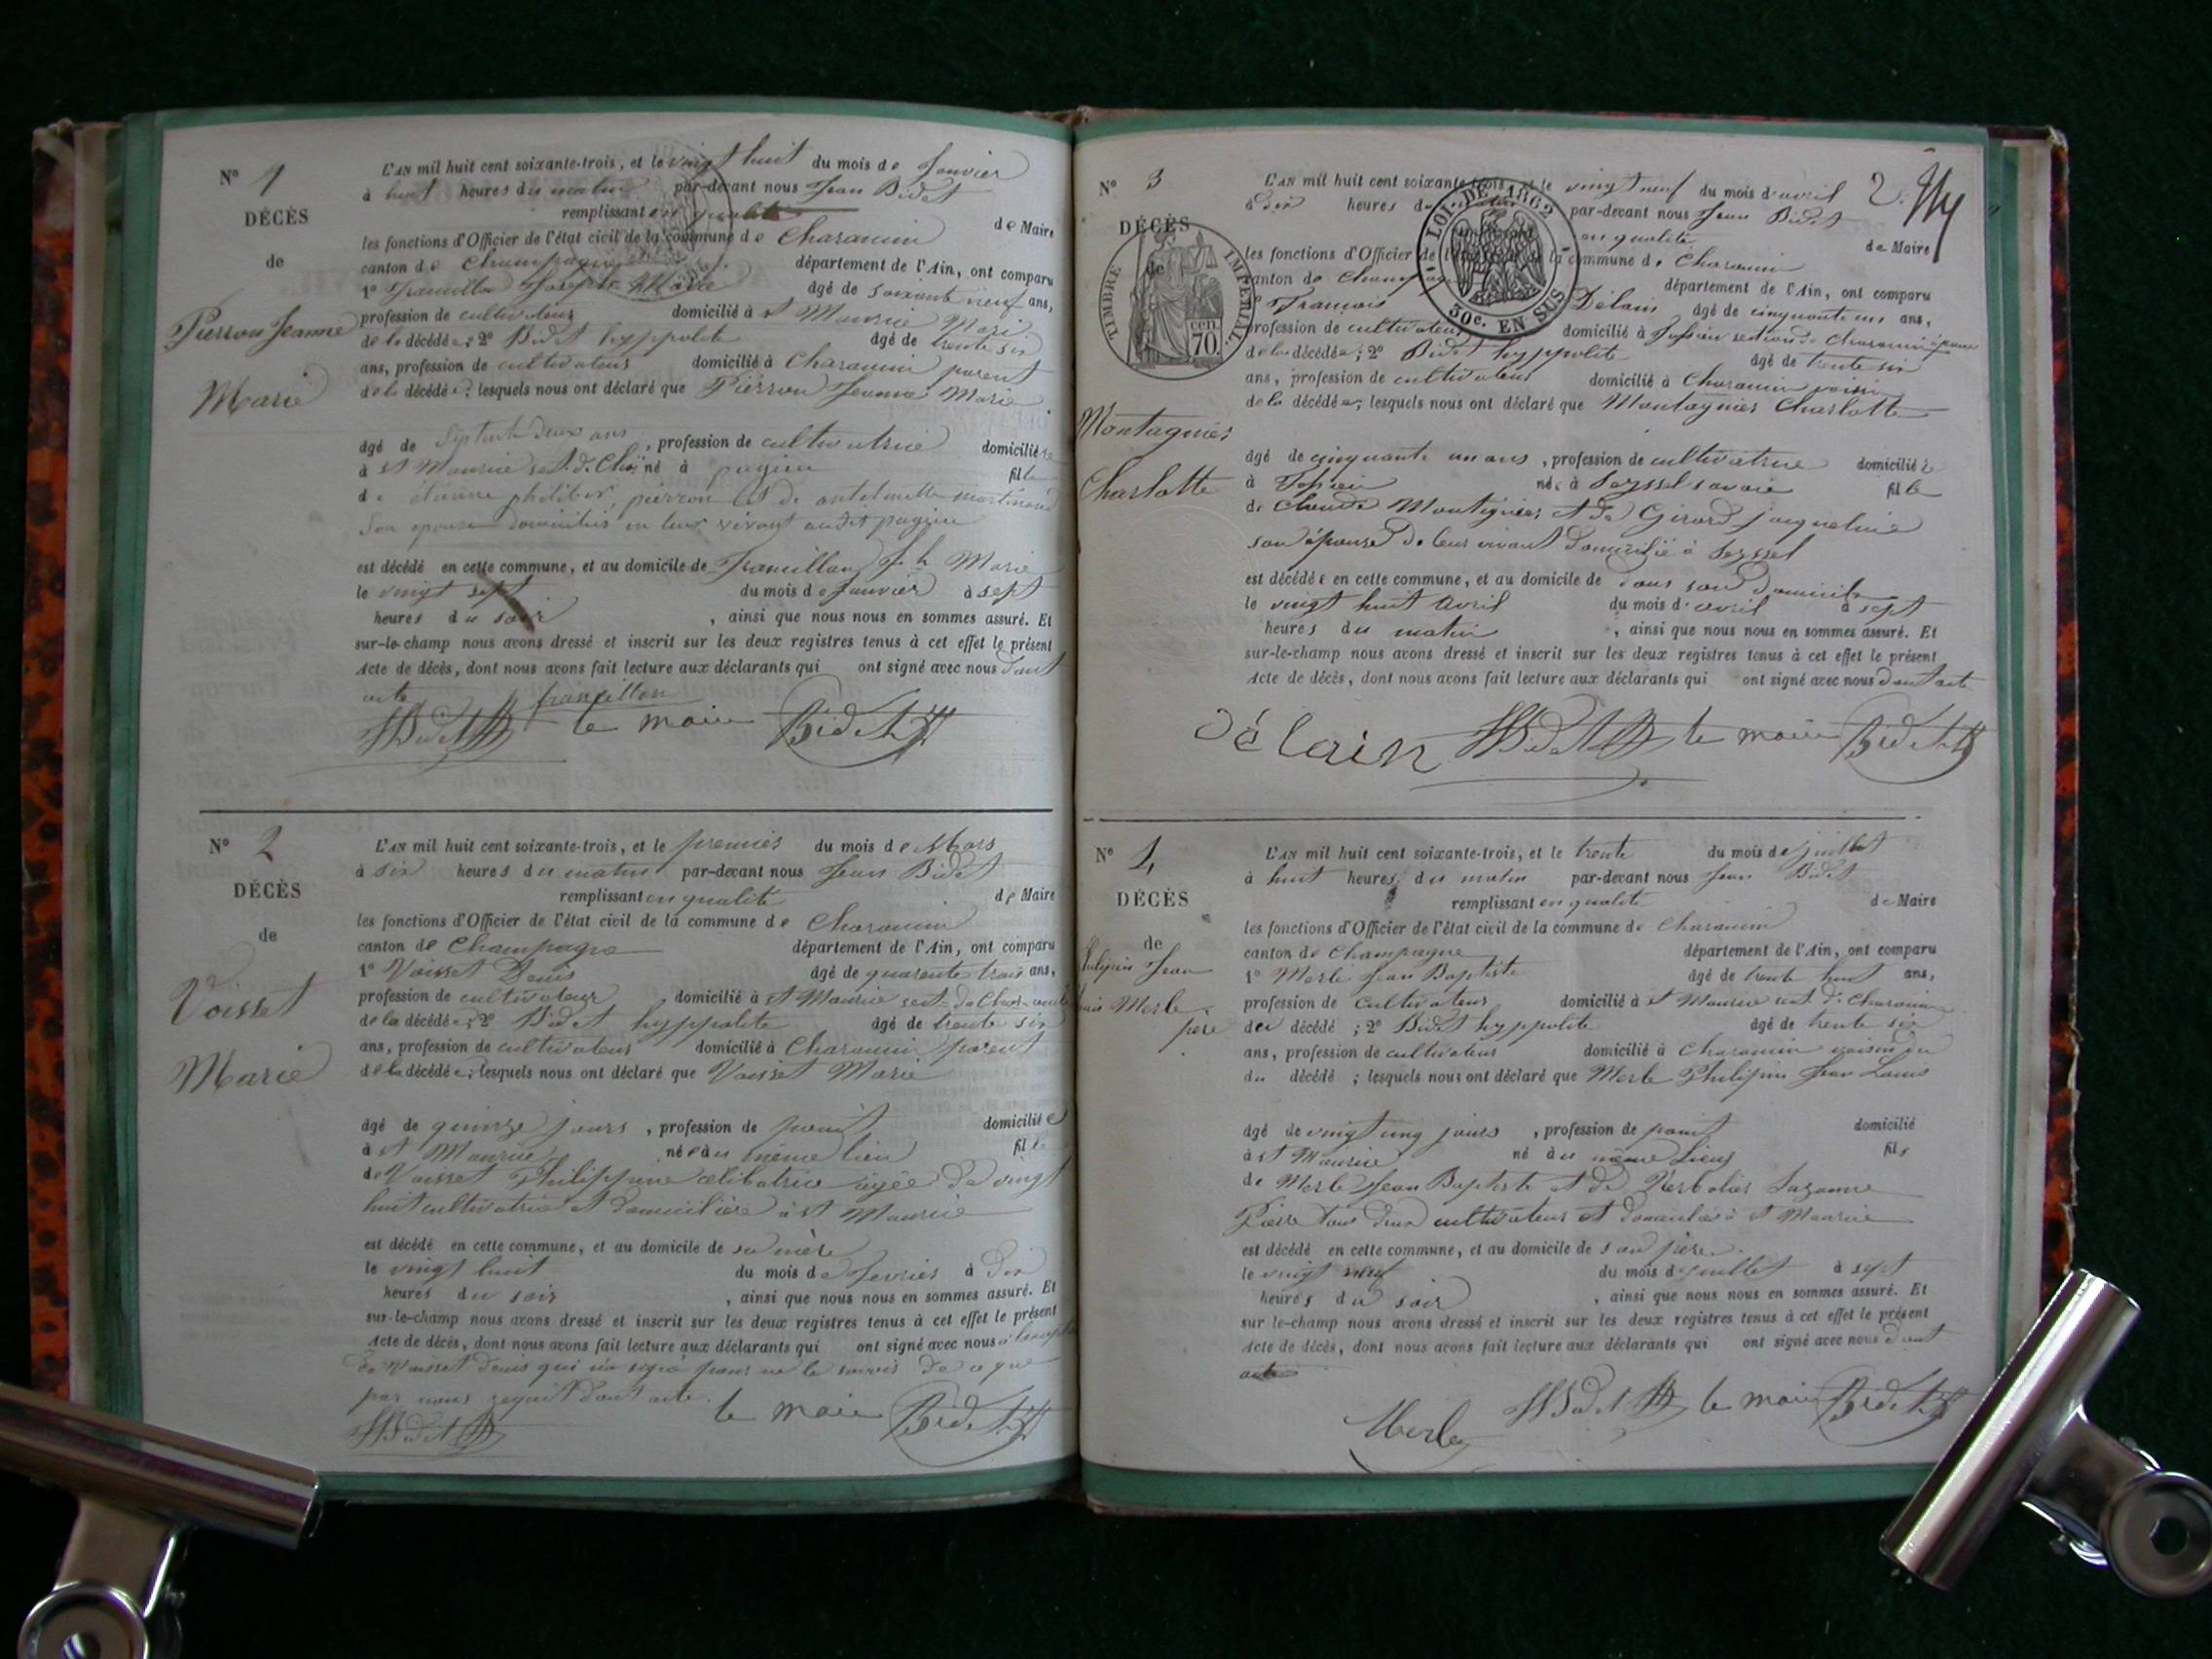 N° 1
DÉCÈS
de
Pierron Jeanne
Marie
L'AN mil huit cent soixante-trois, et le vingt huit du mois de Janvier
à huit heures du matin par-devant nous Jean Bidet
remplissant en qualité de Maire
les fonctions d'Officier de l'état civil de la commune de Charancin
canton de Champagne département de l'Ain, ont comparu
1° Joseph Marie âgé de soixante neuf ans,
profession de cultivateur domicilié à St Maurice Mari
de la décédée; 2° Bidet hyppolite âgé de trente six
ans, profession de cultivateur domicilié à Charancin parent
de la décédée; lesquels nous ont déclaré que Pierron Jeanne Marie
âgé de septante deux ans, profession de cultivatrice domiciliée
à St Maurice né à pugieu fille
de pierron et de antelmette
son epouse domiciliés en leur vivant audit pugieu
est décédé en cette commune, et au domicile de Francillon Jh Marie
le vingt sept du mois de Janvier à sept
heures du soir, ainsi que nous nous en sommes assuré. Et
sur-le-champ nous avons dressé et inscrit sur les deux registres tenus à cet effet le présent
Acte de décès, dont nous avons fait lecture aux déclarants qui ont signé avec nous dont
acte francillon
HBidet le maire Bidet
N° 2
DÉCÈS
de
Voisset
Marie
L'AN mil huit cent soixante-trois, et le premier du mois de Mars
à six heures du matin par-devant nous Jean Bidet
remplissant en qualité de Maire
les fonctions d'Officier de l'état civil de la commune de Charancin
canton de Champagne département de l'Ain, ont comparu
1° Voisset Denis âgé de quarente trois ans,
profession de cultivateur domicilié à St Maurice sect. de Charancin
de la décédée; 2° Bidet hyppolite âgé de trente six
ans, profession de cultivateur domicilié à Charancin parent
de la décédée; lesquels nous ont déclaré que Voisset Marie
âgé de quinze jours, profession de point domiciliée
à St Maurice née au même lieu fille
de Voisset Philippine célibatrice agée de vingt
huit cultivatrice et domicilière à St Maurice
est décédé en cette commune, et au domicile de sa mère
le vingt huit du mois de Fevrier à dix
heures du soir, ainsi que nous nous en sommes assuré. Et
sur-le-champ nous avons dressé et inscrit sur les deux registres tenus à cet effet le présent
Acte de décès, dont nous avons fait lecture aux déclarants qui ont signé avec nous
de Voisset Denis qui n'a signé pour ne le savoir de ce que
par nous requit dont acte. le maire Bidet
HBidet
N° 3
DÉCÈS
de
TIMBRE IMPÉRIAL
70 cen.
LOI DE 1862
30c. EN SUS
Montagnier
Charlotte
2
L'AN mil huit cent soixante-trois, et le vingt neuf du mois d'avril
à dix heures du par-devant nous Jean Bidet
en qualité de Maire
les fonctions d'Officier de la commune de Charancin
canton de Champagne département de l'Ain, ont comparu
1° François Délain âgé de cinquante un ans,
profession de cultivateur domicilié à section de Charancin époux
de la décédée; 2° Bidet hyppolite âgé de trente six
ans, profession de cultivateur domicilié à Charancin voisin
de la décédée; lesquels nous ont déclaré que Montagnier Charlotte
âgé de cinquante un ans, profession de cultivatrice domiciliée
à née à Seyssel savoie fille
de Claude Montignier et de Girard jacqueline
son épouse de leur vivant domicilié à Seyssel
est décédée en cette commune, et au domicile de dans son domicile
le vingt huit avril du mois d'avril à sept
heures du matin, ainsi que nous nous en sommes assuré. Et
sur-le-champ nous avons dressé et inscrit sur les deux registres tenus à cet effet le présent
Acte de décès, dont nous avons fait lecture aux déclarants qui ont signé avec nous dont acte
Délain HBidet le maire Bidet
N° 4
DÉCÈS
de
Jean
Merle
père
L'AN mil huit cent soixante-trois, et le trente du mois de juillet
à huit heures du matin par-devant nous Jean Bidet
remplissant en qualité de Maire
les fonctions d'Officier de l'état civil de la commune de Charancin
canton de Champagne département de l'Ain, ont comparu
1° Merle Jean Baptiste âgé de trente huit ans,
profession de cultivateur domicilié à St Maurice sect. de Charancin
du décédé; 2° Bidet hyppolite âgé de trente six
ans, profession de cultivateur domicilié à Charancin voisin du
du décédé; lesquels nous ont déclaré que Merle Jean Louis
âgé de vingt cinq jours, profession de point domicilié
à St Maurice né au même lieu fils
de Merle Jean Baptiste et de Suzanne
Pierre tous deux cultivateurs et domiciliés à St Maurice
est décédé en cette commune, et au domicile de son père
le vingt neuf du mois de juillet à sept
heures du soir, ainsi que nous nous en sommes assuré. Et
sur le-champ nous avons dressé et inscrit sur les deux registres tenus à cet effet le présent
Acte de décès, dont nous avons fait lecture aux déclarants qui ont signé avec nous dont
acte
Merle HBidet le maire Bidet